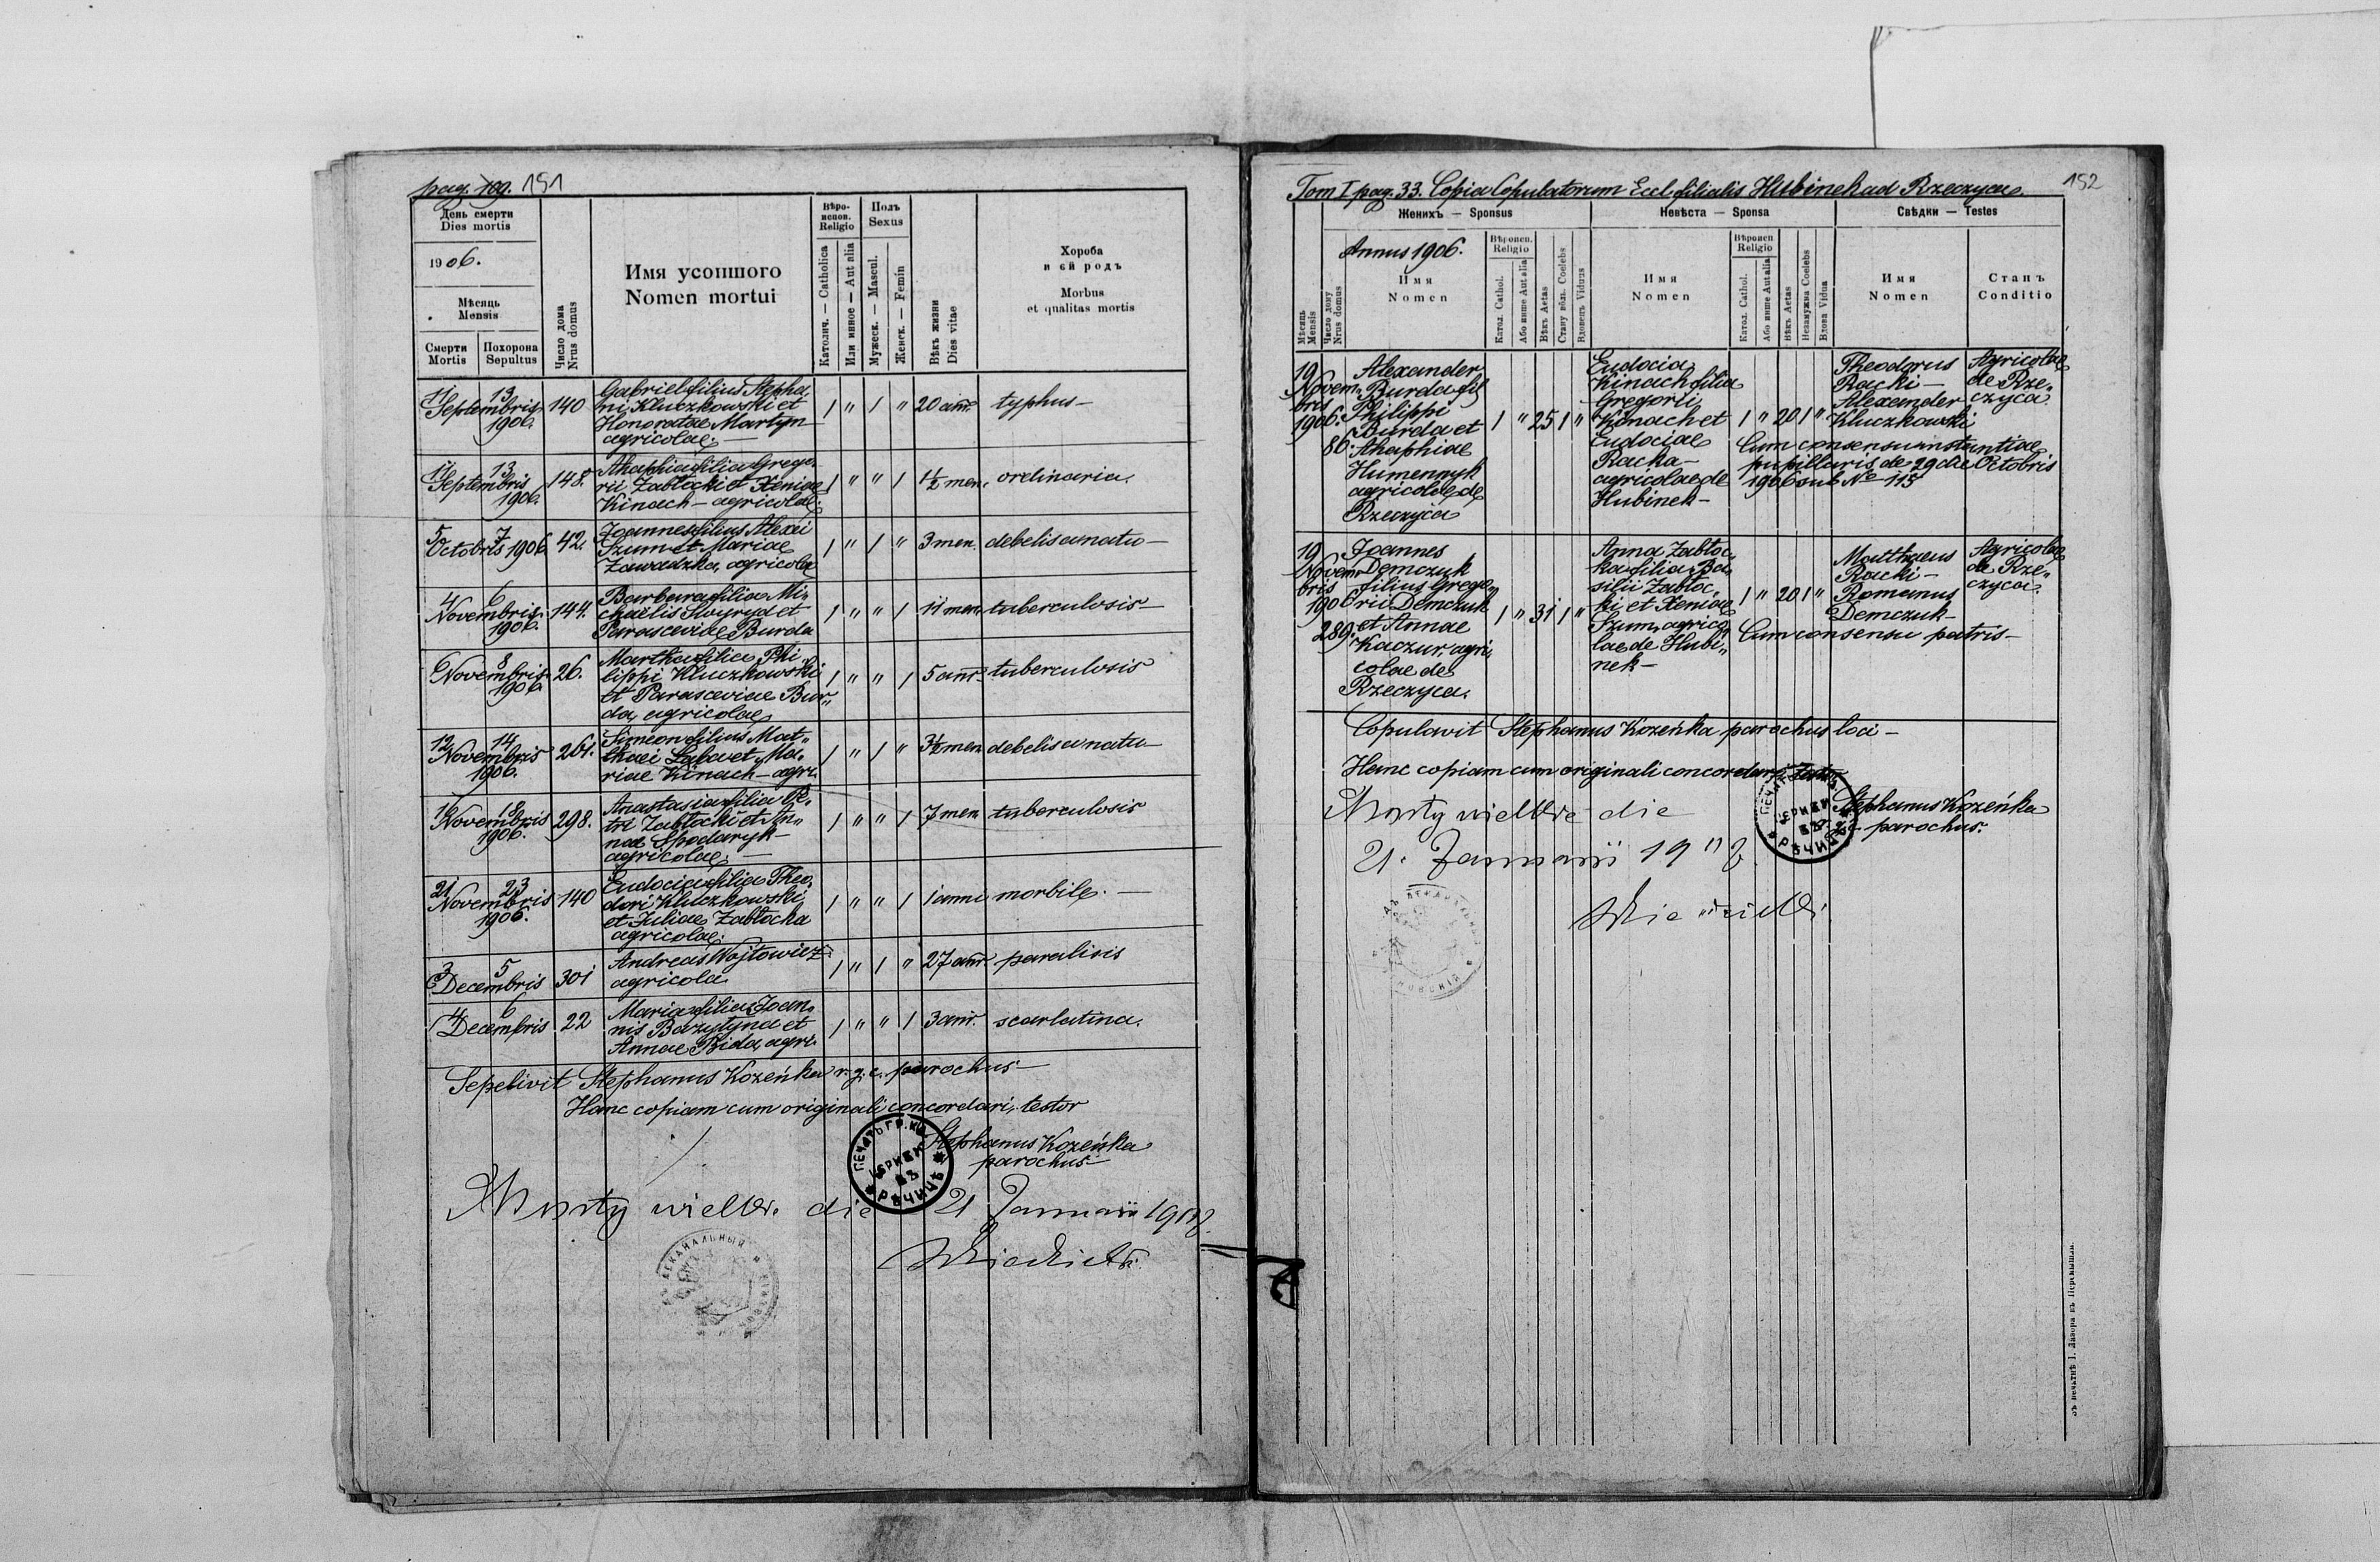 pag. 109. 151
День смерти
Dies mortis
1906.
Мѣсяць
Mensis
Смерти
Mortis
Похорона
Sepultus
Число дома
Nrus domus
Имя усопшого
Nomen mortui
Вѣро-
испов.
Religio
Католич. — Catholica
Или инное — Aut alia
Полъ
Sexus
Мужеск. — Mascul.
Женск. — Femin
Вѣкъ жизни
Dies vitae
Хороба
и єй родъ
Morbus
et qualitas mortis
11 13
Septembris
1906.
140
Gabriel filius Stepha„
ni Kluczkowski et
Honoratae Martyn
agricolae. —
1 " 1 " 20 ann. typhus —
11 13
Septembris
1906.
148.
Ahaphia filia Grego„
rii Zabłocki et Xeniae
Kinach — agricolae.
1 " " 1 1½ men. ordinaria.
5 7
Octobris 1906
42.
Joannes filius Alexei
Szum et Mariae
Zawadzka, agricolae
1 " 1 " 3 men. debelis a natu —
4 6
Novembris.
1906.
144.
Barbara filia Mi„
chaëlis Swyryd et
Parasceviae Burda
1 " " 1 11 men. tuberculosis —
6 8
Novembris.
1906.
26.
Martha filia Phi„
lippi Kluczkowski
et Parasceviae Bur„
da, agricolae
1 " " 1 5 ann. tuberculosis
12 14
Novembris
1906.
261.
Simeon filius Mat„
thaei Łaba et Ma„
riae Kinach — agri.
1 " 1 " 3½ men debelis a natu —
16 18
Novembris
1906.
298.
Anastasia filia Pe„
tri Zabłocki et An„
nae Spodaryk —
agricolae. —
1 " " 1 7 men. tuberculosis
21 23
Novembris
1906.
140
Eudocia filia Theo„
dori Kluczkowski
et Juliae Zabłocka
agricolae.
1 " " 1 1 anni morbile. —
3 5
Decembris
301
Andreas Wojtowicz
agricola
1 " 1 " 27 ann. paralisis
4 6
Decembris
22
Maria filia Joan„
nis Bazytyna et
Annae Bida, agri.
1 " " 1 3 ann. scarlatina.
Sepelivit Stephanus Kozeńka r. g. c. parochus —
Hanc copiam cum originali concordari, testor
Stephanus Kozeńka
parochus —
ПЕЧАТЬ ГР. К.
ЦЕРКВИ
ВЪ
РѢЧИЦѢ
die 21 Januarii
ДЕКАНАЛЬНЫЙ
Tom I pag. 33. Copia Copulatorum Eccl. filialis Hubinek ad Rzeczyca.
152
Женихъ — Sponsus
Невѣста — Sponsa
Свѣдки — Testes
Мѣсяць
Mensis
Число дому
Nrus domus
Annus 1906.
Имя
Nomen
Вѣроисп.
Religio
Катол. Cathol.
Або инше Aut alia
Вѣкъ Aetas
Стану вóль. Coelebs
Вдовець Viduus
Имя
Nomen
Вѣроисп.
Religio
Катол. Cathol.
Або инше Aut alia
Вѣкъ Aetas
Незамужна Coelebs
Вдова Vidua
Имя
Nomen
Станъ
Conditio
19
Novem„
bris
1906.
86.
Alexander
Burda fil.
Philippi
Burda et
Ahaphiae
Humennyk
agricolae de
Rzeczyca
1 " 25 1 "
Eudocia
Kinach filia
Gregorii
Kinach et
Eudociae
Racka —
agricolae de
Hubinek —
1 " 20 1 "
Theodorus
Racki —
Alexander
Kluczkowski
Agricolae
de Rze„
czyca.
Cum consensu instantiae
pupillaris de 29 die Octobris
1906 sub No 115
19
Novem„
bris
1906
289.
Joannes
Demczuk
filius Grego„
rii Demczuk
et Annae
Kaczur, agri„
colae de
Rzeczyca.
1 " 31 1 "
Anna Zabłoc„
ka filia Ba„
silii Zabłoc„
ki et Xeniae
Szum, agrico„
lae de Hubi„
nek —
1 " 20 1 "
Matthaeus
Racki —
Romanus
Demczuk —
Agricolae
de Rze„
czyca.
Cum consensu patris —
Copulavit Stephanus Kozeńka parochus loci —
Hanc copiam cum originali concordari, testor
Stephanus Kozeńka
parochus.
die
21. Januarii
ПЕЧАТЬ
ЦЕРКВИ
ВЪ
РѢЧИЦѢ